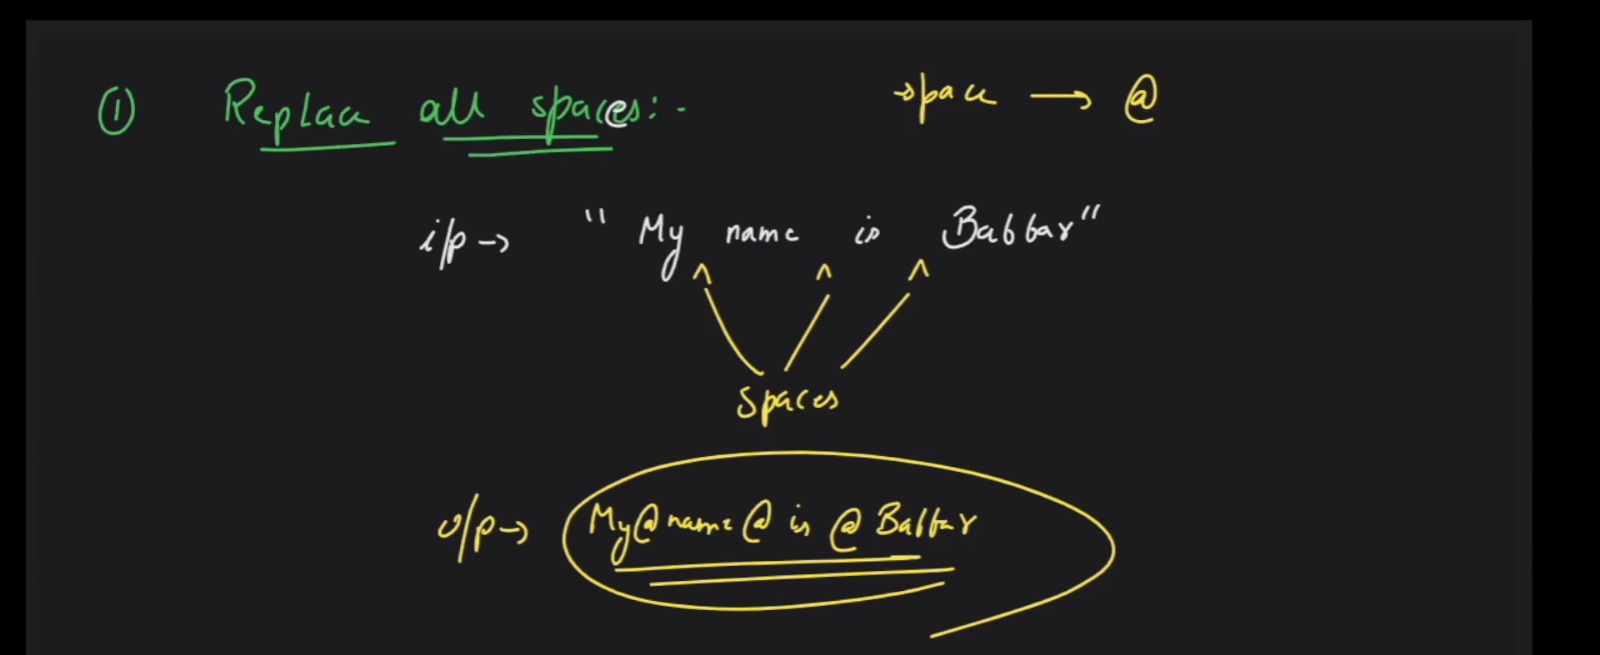 ① Replace all spaces:-
space → @
i/p → "My name is Babbar"
Spaces
o/p → My@name@is@Babbar